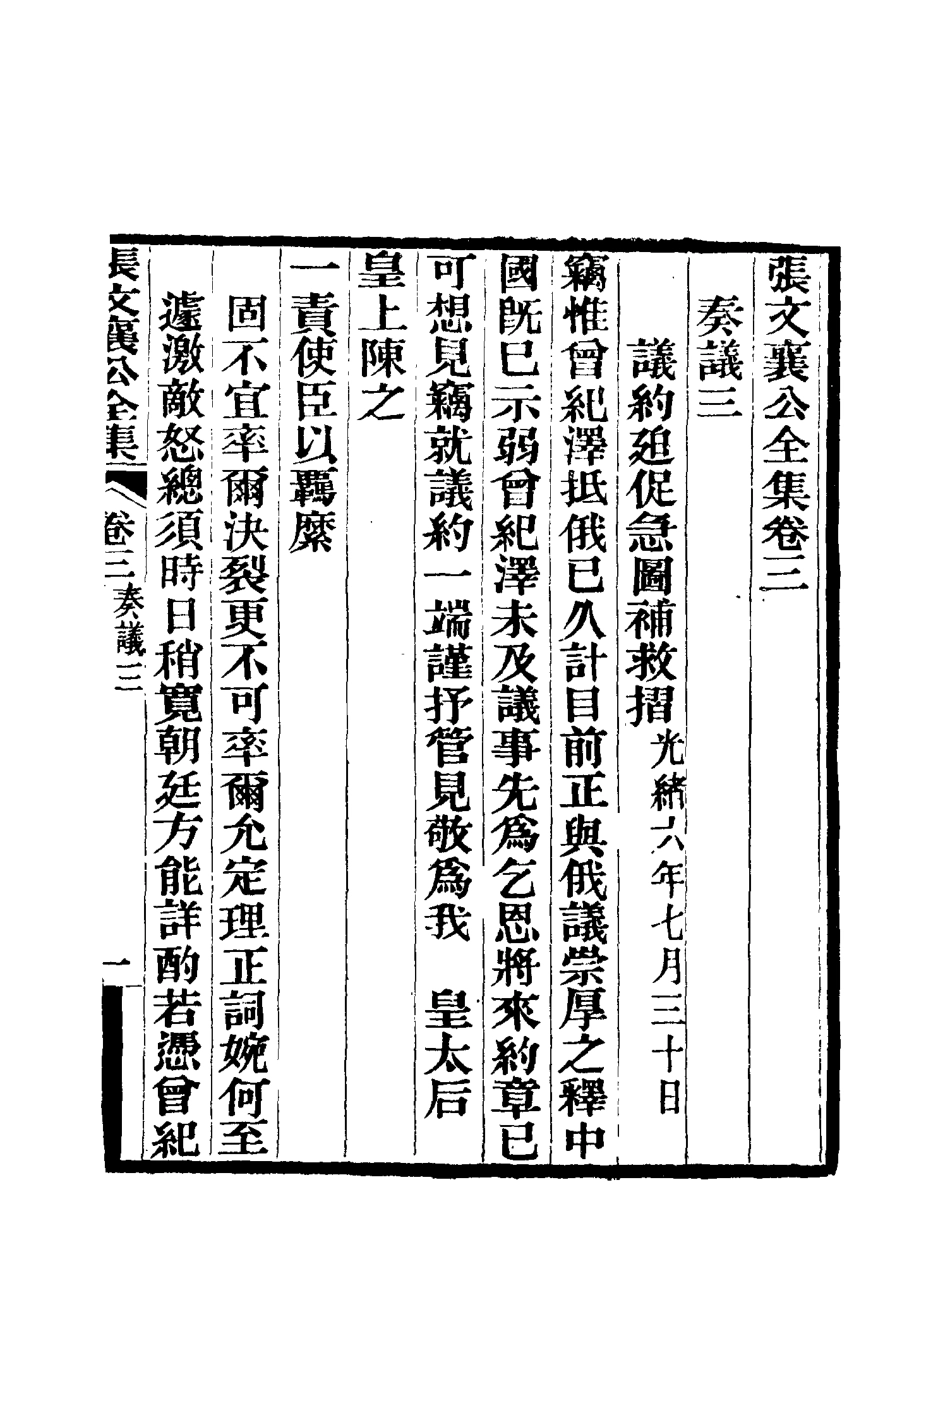 張文襄公全集卷三
奏議三
議約迫促急圖補救摺光緒六年七月三十日
竊惟曾紀澤抵俄已久計目前正與俄議崇厚之釋中
國旣已示弱曾紀澤未及議事先爲乞恩將來約章已
可想見竊就議約一端謹抒管見敬爲我　皇太后
皇上陳之
一責使臣以羈縻
固不宜率爾決裂更不可率爾允定理正詞婉何至
遽激敵怒總須時日稍寬朝廷方能詳酌若憑曾紀
張文襄公全集　卷三奏議三　一